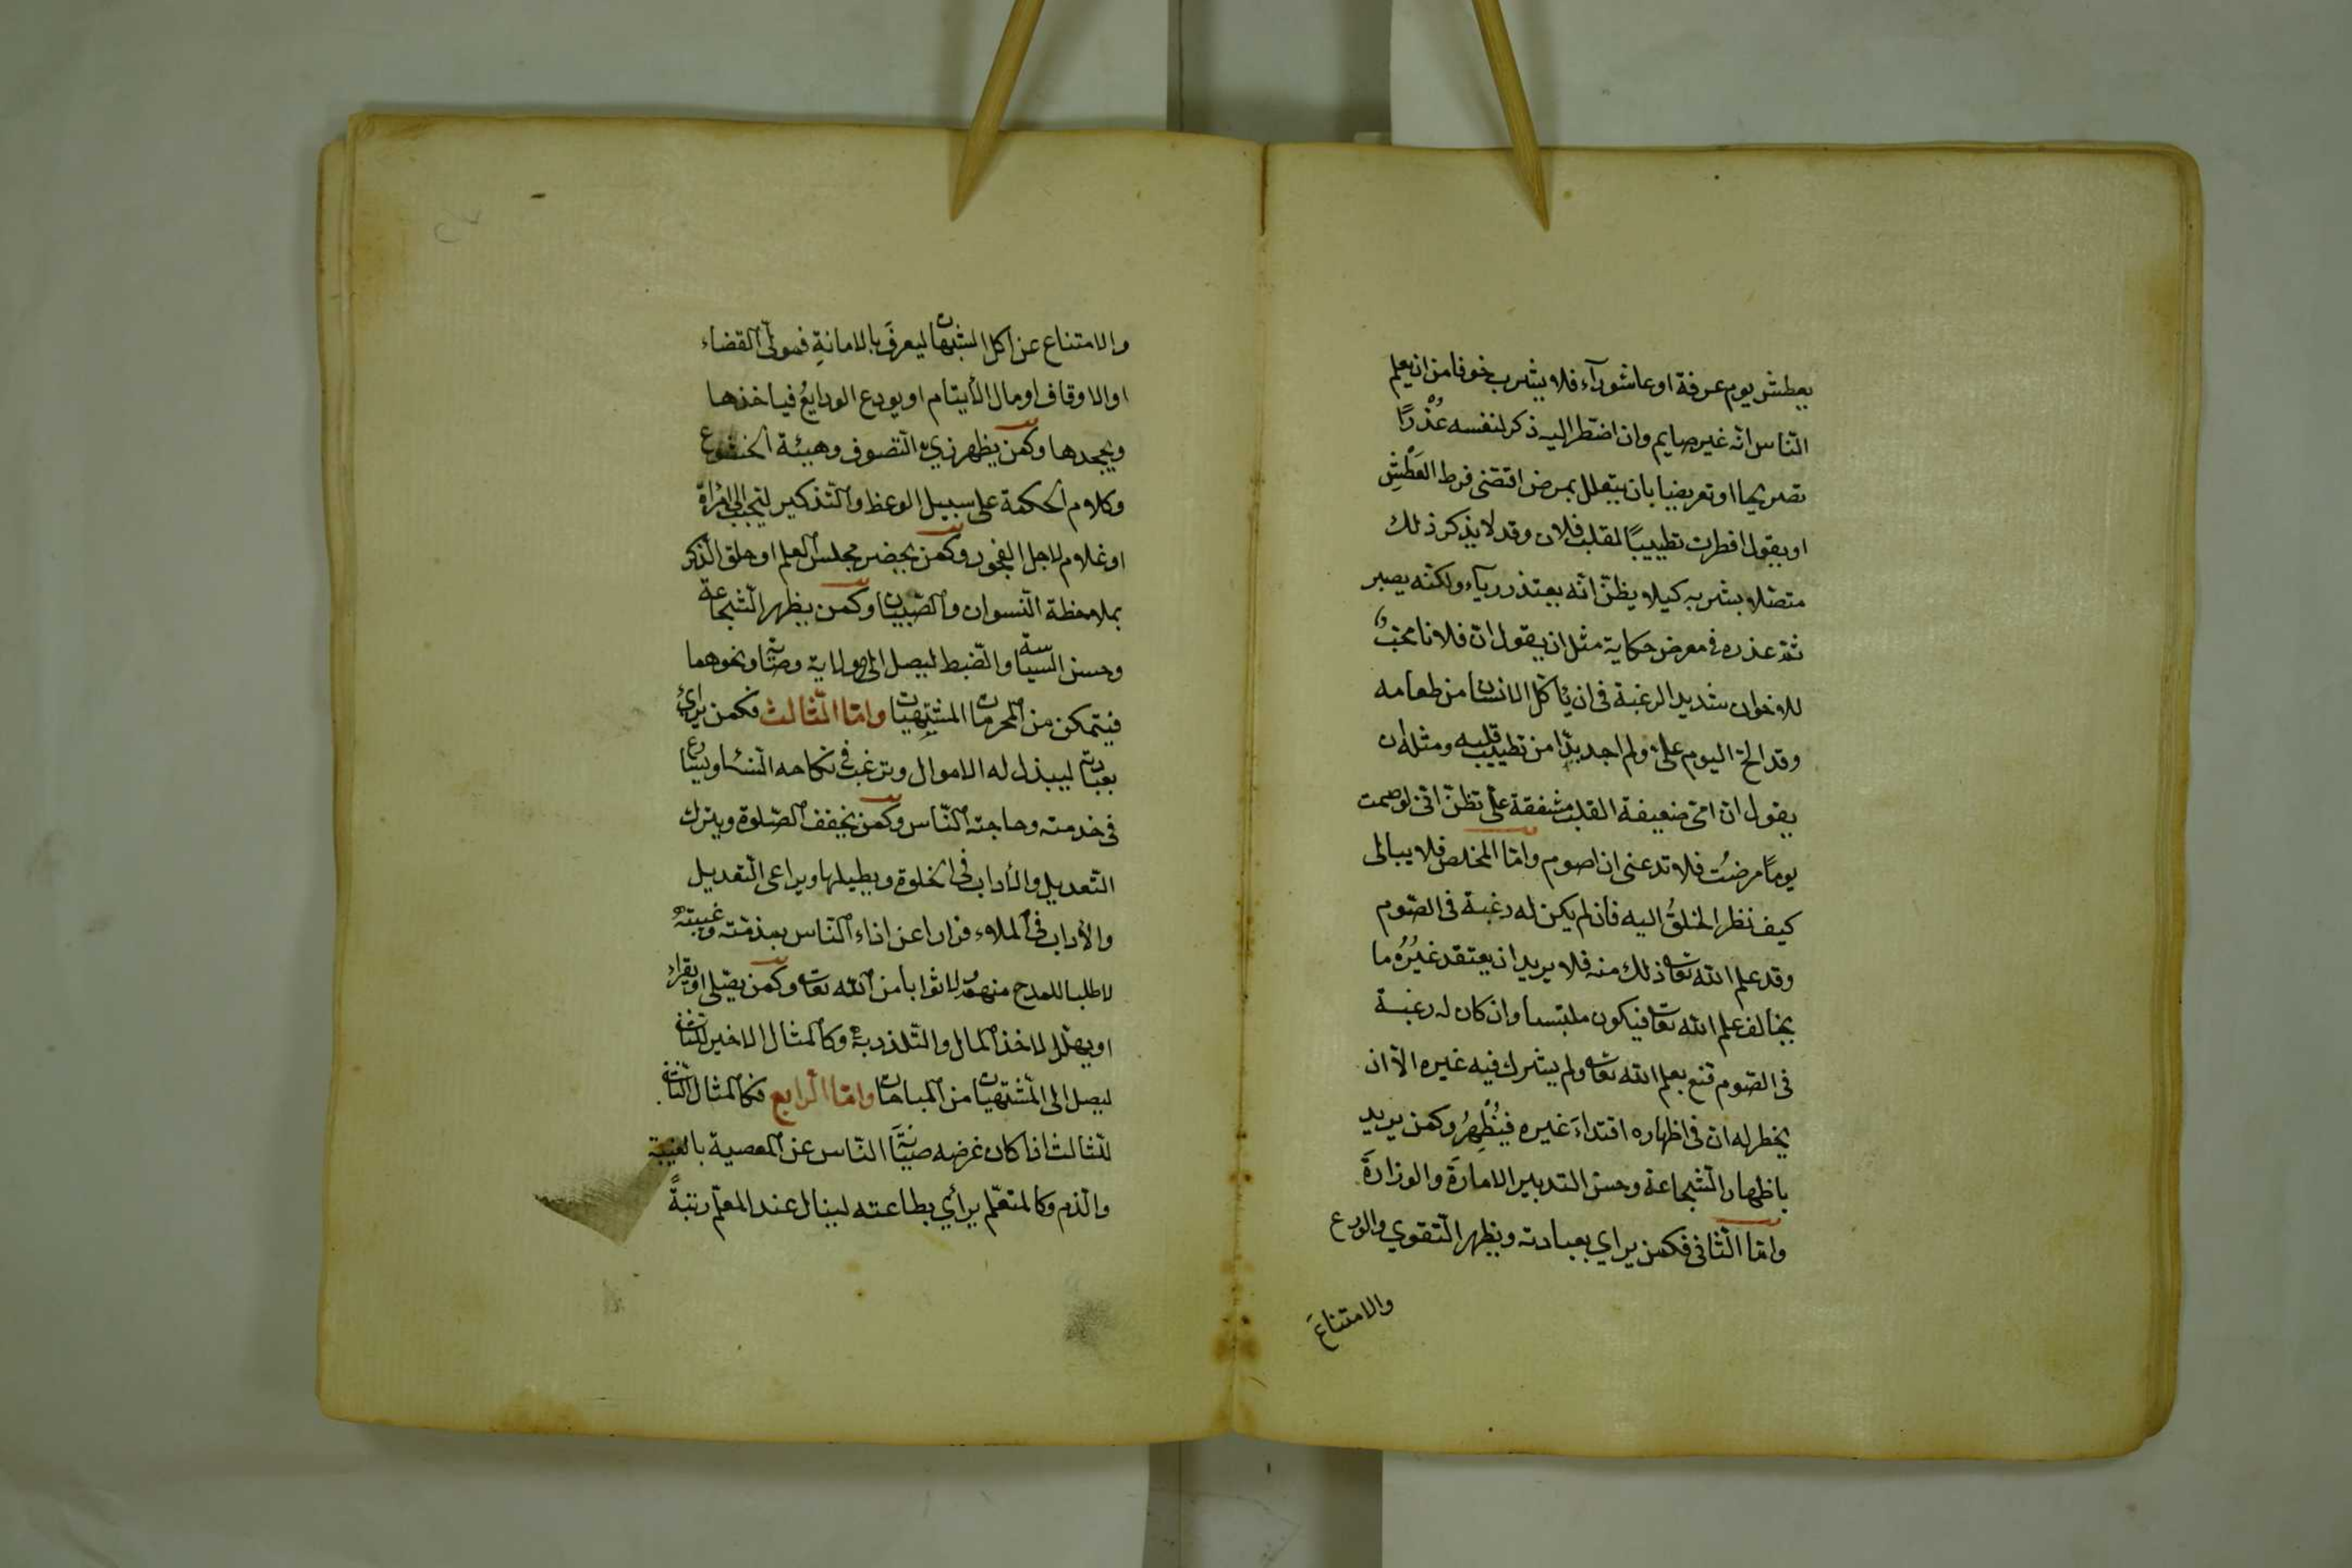 يعطش يوم عرفة او عاشورآء فلا يشرب خوفا من ان يعلم
النّاس انّه غير صايم وان اضطر اليه ذكر لنفسه عُذْرًا
تصريحا او تعريضا بان يتعلل بمرض اقتضى فرط العَطْشِ
او يقول افطرت تطييبًا لقلب فلان وقد لا يذكر ذلك
متصّلا بشربه كيلا يظنّ انّه يعتذر ريآء ولكنّه يصبر
ثمّ عذره فى معرض حكاية مثل ان يقول انّ فلانا محبّ
للاخوان شديد الرغبة فى ان يأكل الانسان من طعامه
وقد الحّ اليوم علىّ ولم اجد بدّا من تطييب قلبه ومثله ان
يقول انّ امّى ضعيفة القلب مشفقة علىّ تظنّ انّى لو صمت
يومًا مرضتُ فلا تدعنى ان اصوم وامّا المخلص فلا يبالى
كيف نظر الخلقُ اليه فان لم يكن له رغبة فى الصّوم
وقد علم الله تعا ذلك منه فلا يريد ان يعتقد غيرُه ما
يخالف علم الله تعا فيكون ملبّسا وان كان له رغبة
فى الصّوم قنع بعلم الله تعا ولم يشرك فيه غيره الّا ان
يخطر له ان فى اظهاره اقتداءَ غيره فيُظْهِرُ وكمن يريد
باظهار الشّجاعة وحسن التدبير الامارَةَ والوزارَةَ
وامّا الثّانى فكمن يراي بعبادته ويظهر التّقوي والورع
والامتناعَ
والامتناع عن اكل الشبهات ليعرفَ بالامانةِ فيولّى القضاء
او الاوقاف او مال الأيتام او يودع الودايعُ فياخذها
ويجحدها وكمن يظهر زيّ التّصوف وهيئة الخشوع
وكلام الحكمة على سبيل الوعظ والتّذكير ليتحبب الى امرأة
او غلام لاجل الفجور وكمن يحضر مجلس العلم او حلق الذّكر
بملاحظة النّسوان والصّبيان وكمن يظهر الشّجاعة
وحسن السياسة والضّبط ليصل الى ولاية وصّاية ونحوهما
فيتمكن من المحرمات المشتهيات وامّا الثّالث فكمن يرائ
بعبادته ليبذل له الاموال وترغب فى نكاحه النّساء ويسارع
فى خدمته وحاجته النّاس وكمن يخفف الصّلوة ويترك
التّعديل والأداب فى الخلوة ويطيلها ويراعى التّعديل
والأداب فى الملاء فرارا عن اذاء النّاس بمذمّته وغيبته
لا طلبا للمدح منهم ولا ثوابا من الله تعا وكمن يصّلى او يقراء
او يهلّل لاخذ المال والتّلذذ به وكالمثال الاخير للثّانى
ليصل الى المشتهيات من المباحات وامّا الرّابع فكالمثال الثّانى
للثالث اذا كان غرضه صيانة النّاس عن المعصية بالغيبة
والذّم وكالمتعلّم يرائي بطاعته لينال عند المعلّم رتبةً